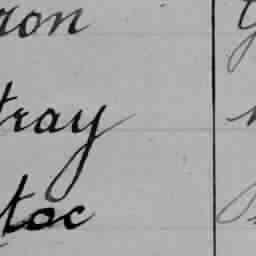 ron
tray
toc